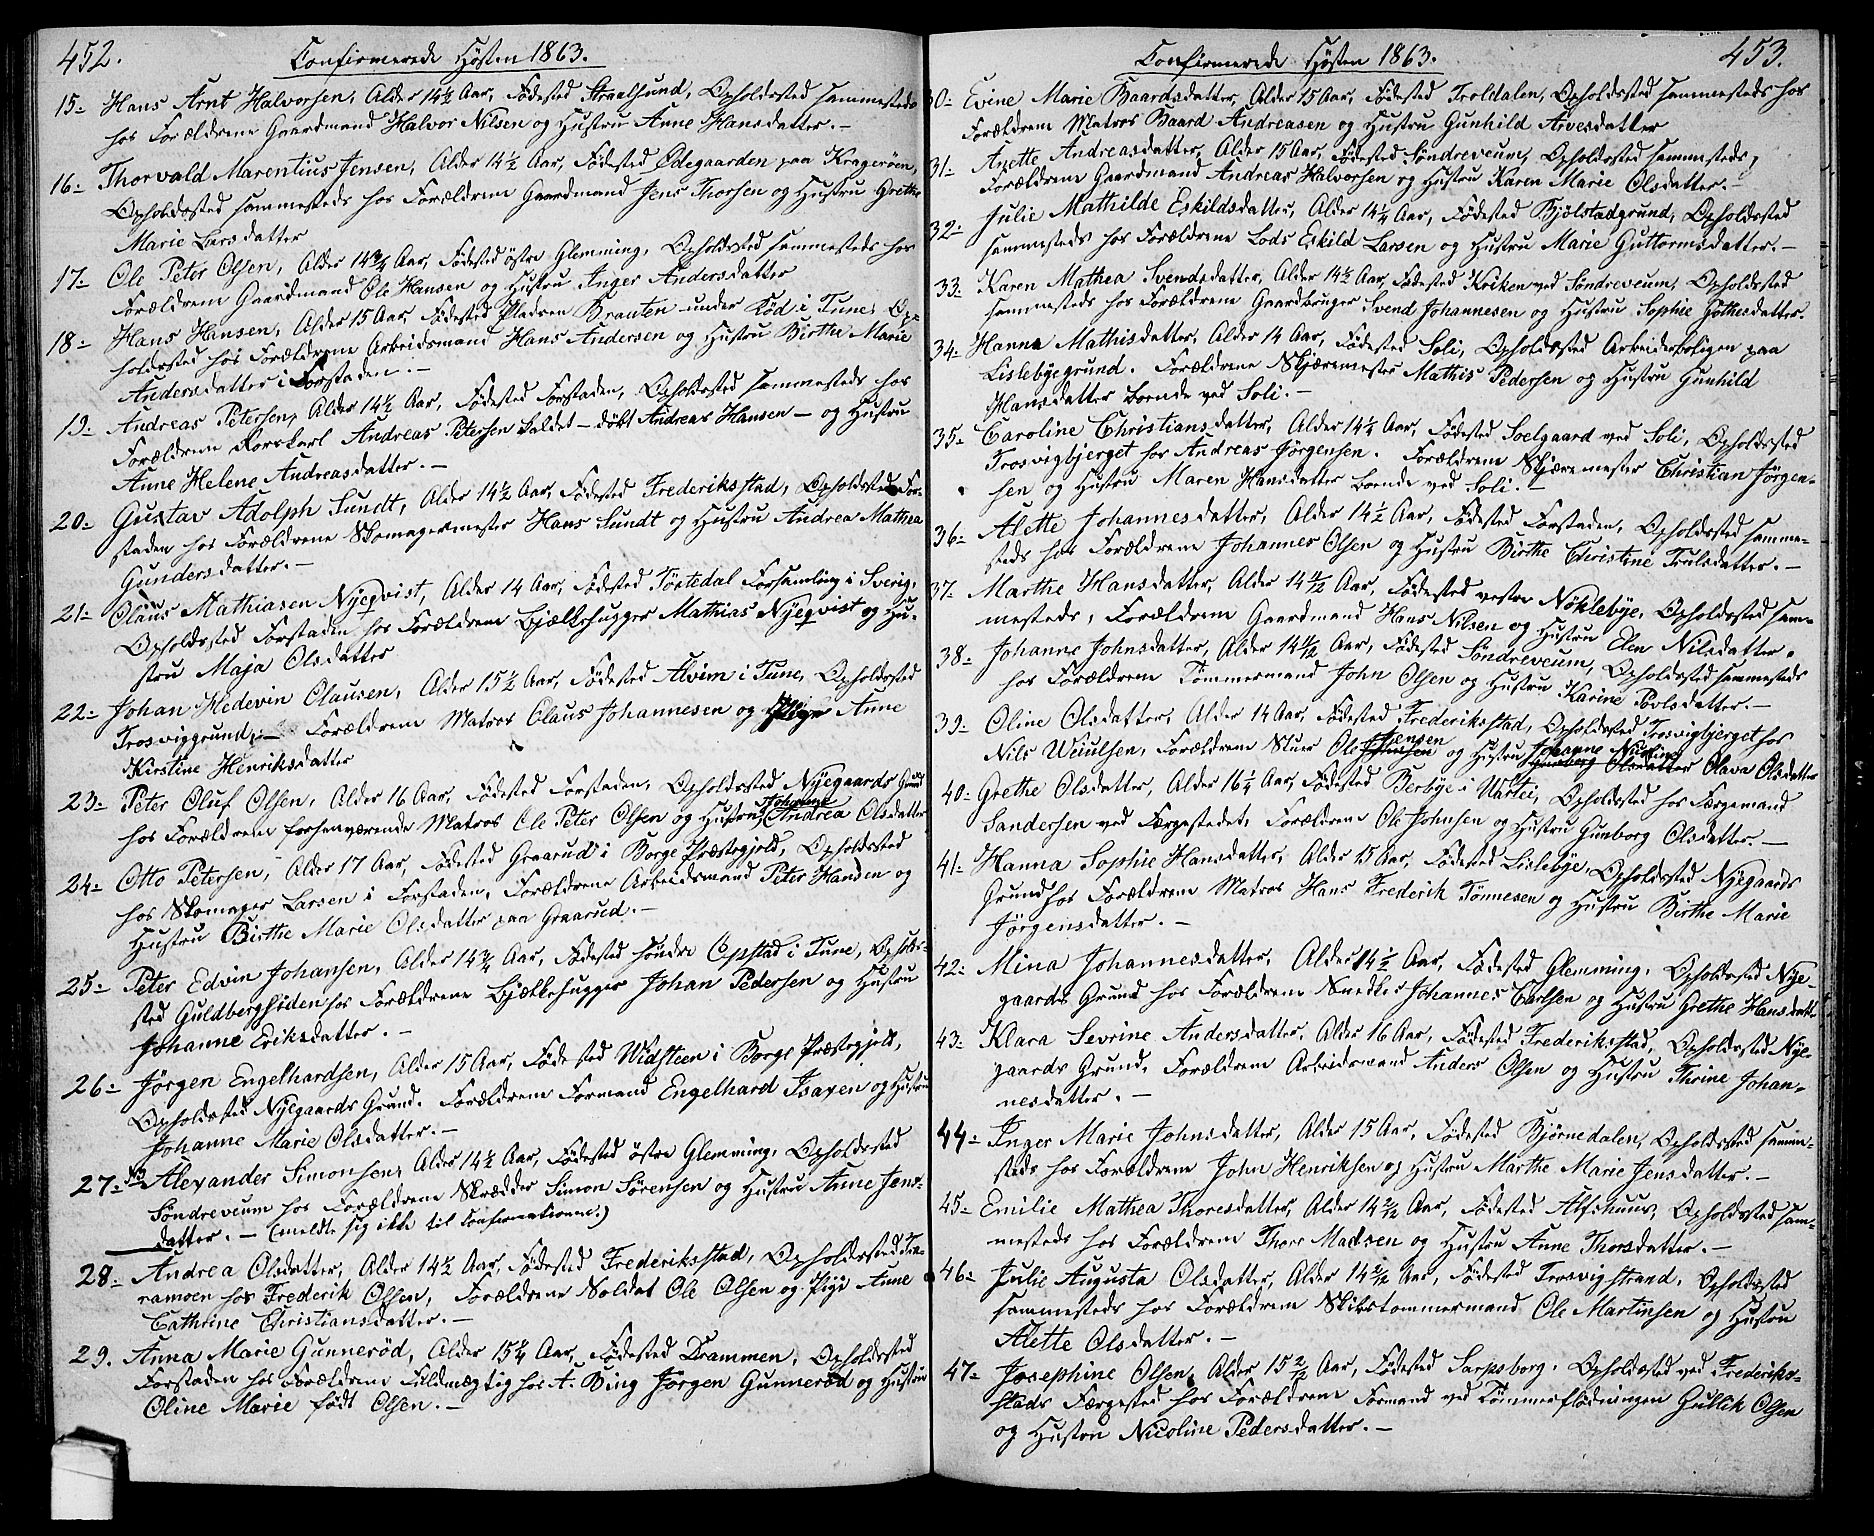 452.
Confirmerede Høsten 1863.
15- Hans Arnt Halvorsen, Alder 14½ Aar, Fødested Straalsund, Opholdssted sammesteds
hos Forældrene Gaardmand Halvor Nilsen og Hustru Anne Hansdatter.-
16- Thorvald Marentius Jensen, Alder 14½ Aar, Fødested Ødegaarden paa Kragerøen,
Opholdssted sammesteds hos Forældrene Gaardmand Jens Thorsen og Hustru Grethe
Marie Larsdatter
17- Ole Peter Olsen, Alder 14¾ Aar, Fødested østre Glemming, Opholdssted sammesteds hos
Forældrene Gaardmand Ole Hansen og Hustru Inger Andersdatter
18- Hans Hansen, Alder 15 Aar, Fødested Pladsen Brauten under Rød i Tune, Op-
holdssted hos Forældrene Arbeidsmand Hans Andersen og Hustru Birthe Marie
Andersdatter i Forstaden.-
19- Andreas Petersen, Alder 14½ Aar, Fødested Forstaden, Opholdssted sammesteds hos
Forældrene Rorskarl Andreas Petersen kaldet - døbt Andreas Hansen - og Hustru
Anne Helene Andreasdatter.-
20- Gustav Adolph Sundt, Alder 14½ Aar, Fødested Frederiksstad, Opholdssted For-
staden hos Forældrene Skomagermester Hans Sundt og Hustru Andrea Mathea
Gundersdatter.-
21- Olaus Mathiasen Nyeqvist, Alder 14 Aar, Fødested Töstedal Forsamling i Sverig,
Opholdssted Forstaden hos Forældrene Bjælkehugger Mathias Nyeqvist og Hu-
stru Maja Olsdatter
22- Johan Hedevin Clausen, Alder 15½ Aar, Fødested Alvim i Tune, Opholdssted
Trosviggrund.- Forældrene Matros Claus Johannesen og Pige Anne
Kirstine Henriksdatter
23- Peter Oluf Olsen, Alder 16 Aar, Fødested Forstaden, Opholdssted Nyegaards Grund
hos Forældrene forhenværende Matros Ole Peter Olsen og Hustru Johanne Andrea Olsdatter
24- Otto Petersen, Alder 17 Aar, Fødested Graarud i Borge Præstegjeld, Opholdssted
hos Skomager Larsen i Forstaden, Forældrene Arbeidsmand Peter Hansen og
Hustru Birthe Marie Olsdatter paa Graarud.-
25- Peter Edvin Johansen, Alder 14¾ Aar, Fødested søndre Opstad i Tune, Opholds-
sted Guldbergsiden hos Forældrene Bjælkehugger Johan Pedersen og Hustru
Johanne Eriksdatter.-
26- Jørgen Engelhardsen, Alder 15 Aar, Fødested Widsteen i Borge Præstegjeld,
Opholdssted Nyegaards Grund. Forældrene Formand Engelhard Isaxen og Hustru
Johanne Marie Olsdatter.-
27- Alexander Simonsen, Alder 14½ Aar, Fødested østre Glemming, Opholdssted
Søndreveum hos Forældrene Skrædder Simon Sørensen og Hustru Anne Jens-
datter.- (meldte sig ikke til Confirmationen.)
28- Andrea Olsdatter, Alder 14½ Aar, Fødested Frederiksstad, Opholdssted
hos Frederik Olsen, Forældrene Soldat Ole Olsen og Pige Anne
Cathrine Christiansdatter.-
29. Anna Marie Gunnerød, Alder 15¼ Aar, Fødested Drammen, Opholdssted
Forstaden hos Forældrene Fuldmægtig hos A. Bing Jörgen Gunnerød og Hustru
Oline Marie født Olsen.-
Confirmerede Høsten 1863.
453.
30- Evine Marie Baardsdatter, Alder 15 Aar, Fødested Troldalen, Opholdssted sammesteds hos
Forældrene Matros Baard Andreasen og Hustru Gunhild Arvesdatter
31- Anette Andreasdatter, Alder 15 Aar, Fødested Søndreveum, Opholdssted sammesteds,
Forældrene Gaardmand Andreas Halvorsen og Hustru Karen Marie Olsdatter.-
32- Julie Mathilde Eskildsdatter, Alder 14¼ Aar, Fødested Bjölstadgrund, Opholdssted
sammesteds hos Forældrene Lods Eskild Larsen og Hustru Marie Guttormsdatter.-
33- Karen Mathea Svendsdatter, Alder 14½ Aar, Fødested Kriken ved Søndreveum, Opholdssted
sammesteds hos Forældrene Gaardbruger Svend Johannesen og Hustru Sophie Göthesdatter.
34- Hanna Mathisdatter, Alder 14 Aar, Fødested Soli, Opholdssted Arbeiderboligen paa
Lislebyegrund. Forældrene Skjæremester Mathis Pedersen og Hustru Gunhild
Hansdatter boende ved Soli.-
35- Caroline Christiansdatter, Alder 14¼ Aar, Fødested Soelgaard ved Soli, Opholdssted
Trosvigbjerget hos Andreas Jörgensen. Forældrene Skjæremester Christian Jörgen-
sen og Hustru Maren Hansdatter boende ved Soli.-
36- Alette Johannesdatter, Alder 14½ Aar, Fødested Forstaden, Opholdssted samme-
steds hos Forældrene Johannes Olsen og Hustru Birthe Christine Trulsdatter.-
37- Marthe Hansdatter, Alder 14½ Aar, Fødested vestre Nöklebye, Opholdssted sam-
mesteds, Forældrene Gaardmand Hans Nilsen og Hustru Elen Nilsdatter.
38- Johanne Johnsdatter, Alder 14½ Aar, Fødested Søndreveum, Opholdssted sammesteds
hos Forældrene Tömmermand John Olsen og Hustru Karine Povlsdatter.-
39- Oline Olsdatter, Alder 14 Aar, Fødested Frederiksstad, Opholdssted Trosvigbjerget hos
Nils Weiulsen, Forældrene Stuer Ole Jensen og Hustru Johanne Olava Olsdatter
40- Grethe Olsdatter, Alder 16¼ Aar, Fødested Berbye i Vartei, Opholdssted hos Færgemand
Sandersen ved Færgestedet, Forældrene Ole Johnsen og Hustru Gunborg Olsdatter.-
41- Hanna Sophie Hansdatter, Alder 15 Aar, Fødested Lislebye, Opholdssted Nyegaards
Grund hos Forældrene Matros Hans Frederik Tönnesen og Hustru Birthe Marie
Jörgensdatter.-
42- Mina Johannesdatter, Alder 14½ Aar, Fødested Glemming, Opholdssted Nye-
gaards Grund hos Forældrene Snedker Johannes Carlsen og Hustru Grethe Hansdatter
43- Klara Sevrine Andersdatter, Alder 16 Aar, Fødested Frederiksstad, Opholdssted Nye-
gaards Grund, Forældrene Arbeidsmand Anders Olsen og Hustru Thrine Johan-
nesdatter.-
44- Inger Marie Johnsdatter, Alder 15 Aar, Fødested Bjørnedalen, Opholdssted samme-
steds hos Forældrene John Henriksen og Hustru Marthe Marie Jensdatter.-
45- Emilie Mathea Thoresdatter, Alder Aar, Fødested Alfshuus, Opholdssted sam-
mesteds hos Forældrene Thore Madsen og Hustru Anne Thorsdatter.-
46- Julie Augusta Olsdatter, Alder Aar, Fødested Trosvigstrand, Opholdssted
sammesteds hos Forældrene Skibstømmermand Ole Martinsen og Hustru
Alette Olsdatter.-
47- Josephine Olsen, Alder Aar, Fødested Sarpsborg, Opholdssted ved Frederiks-
stads Færgested hos Forældrene Formand ved Tømmerflødningen Gullik Olsen
og Hustru Nicoline Pedersdatter.-